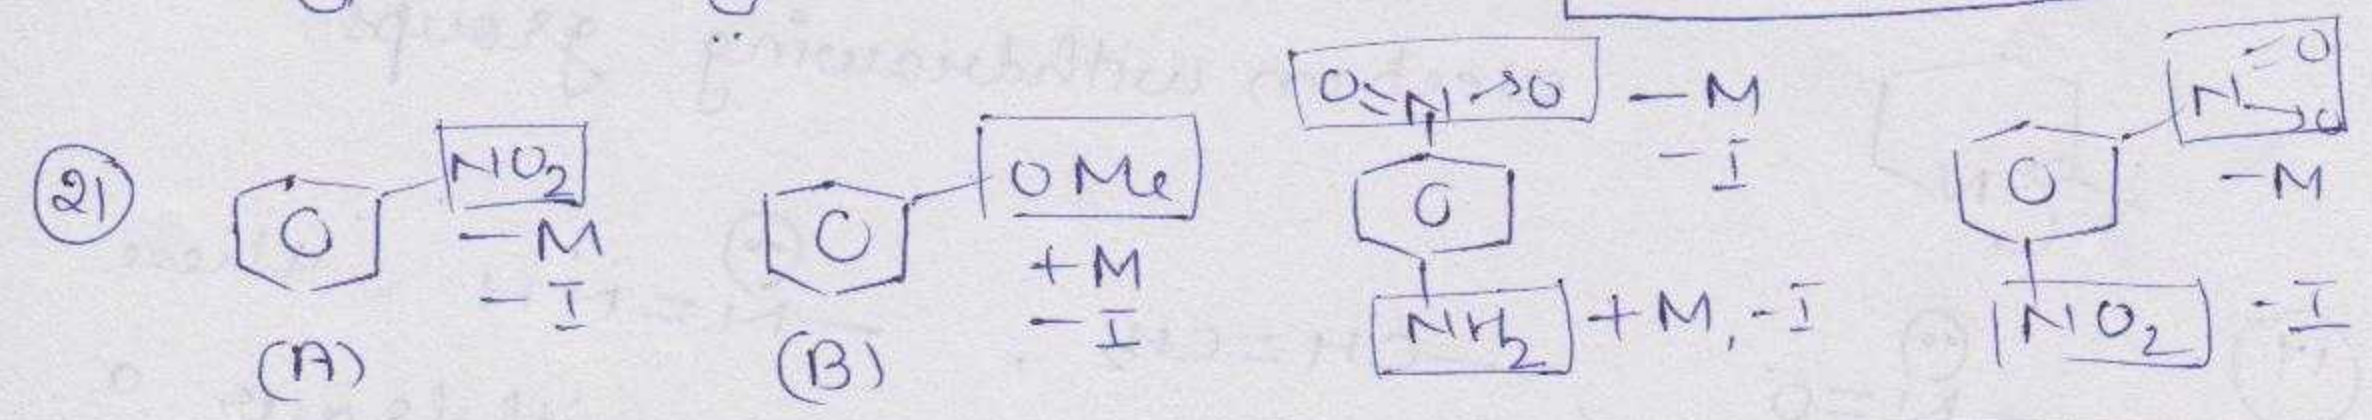 21
NO2
-M
-I
(A)
OMe
+M
-I
(B)
O=N→O -M
-I
NH2 +M, -I
N=O
→O
-M
NO2 -I